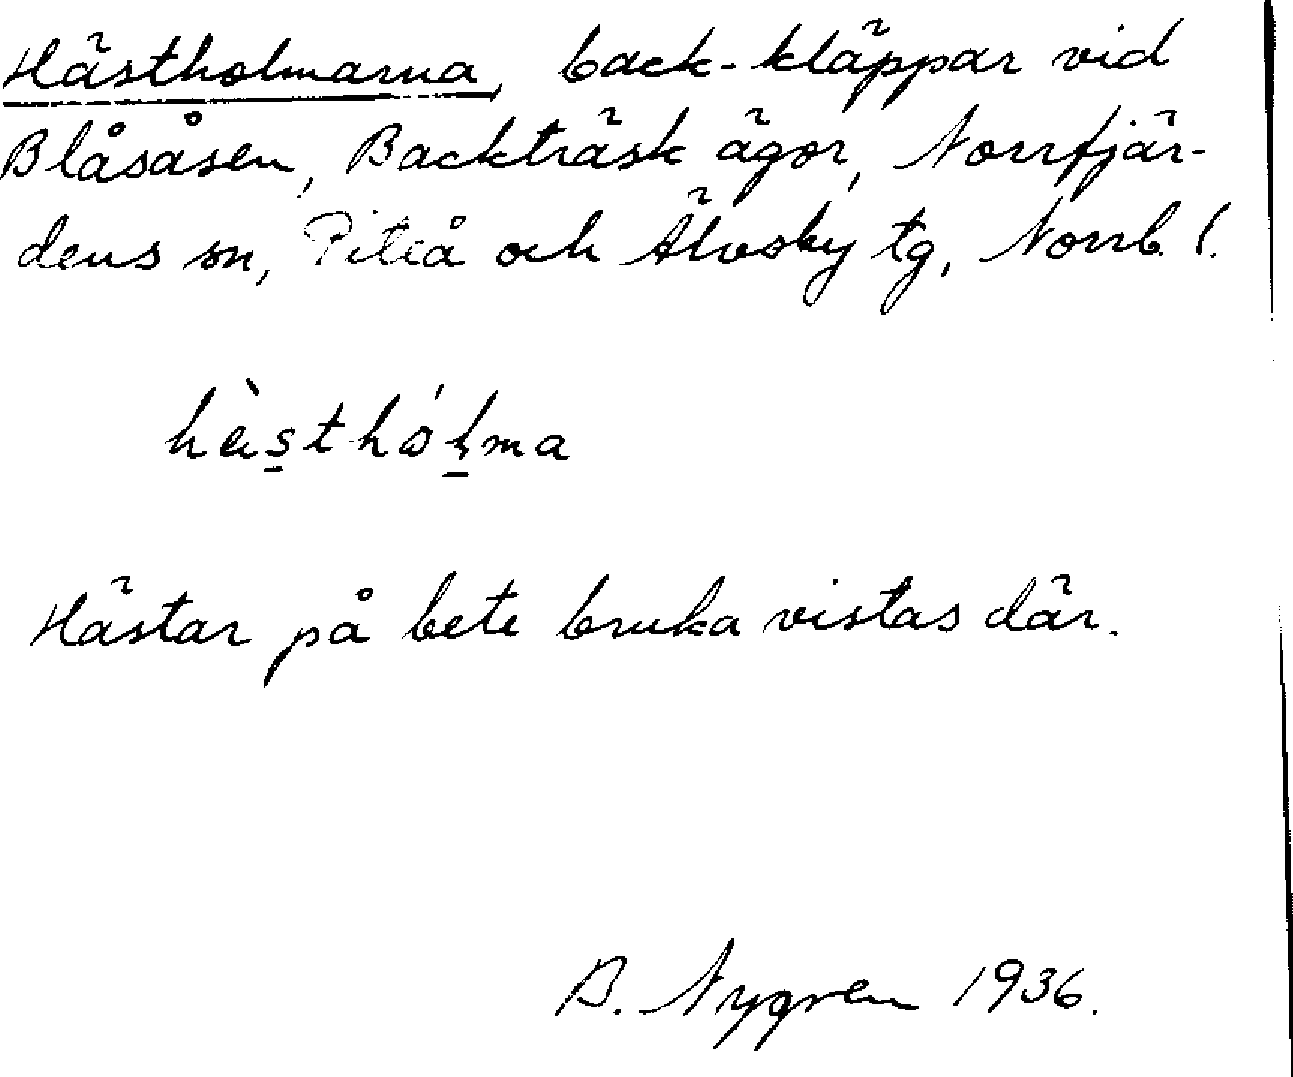 Hästholmarna, back-kläppar vid
Blåsåsen, Backträsk ägor, Norrfjär-
dens sn, Piteå och Älvsby tg, Norrb. l.
hàsthól̠ma
Hästar på bete bruka vistas där.
B. Nygren 1936.